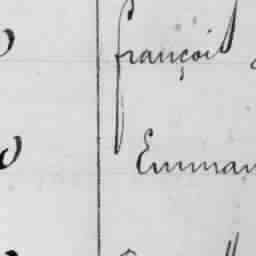 françois
Emman